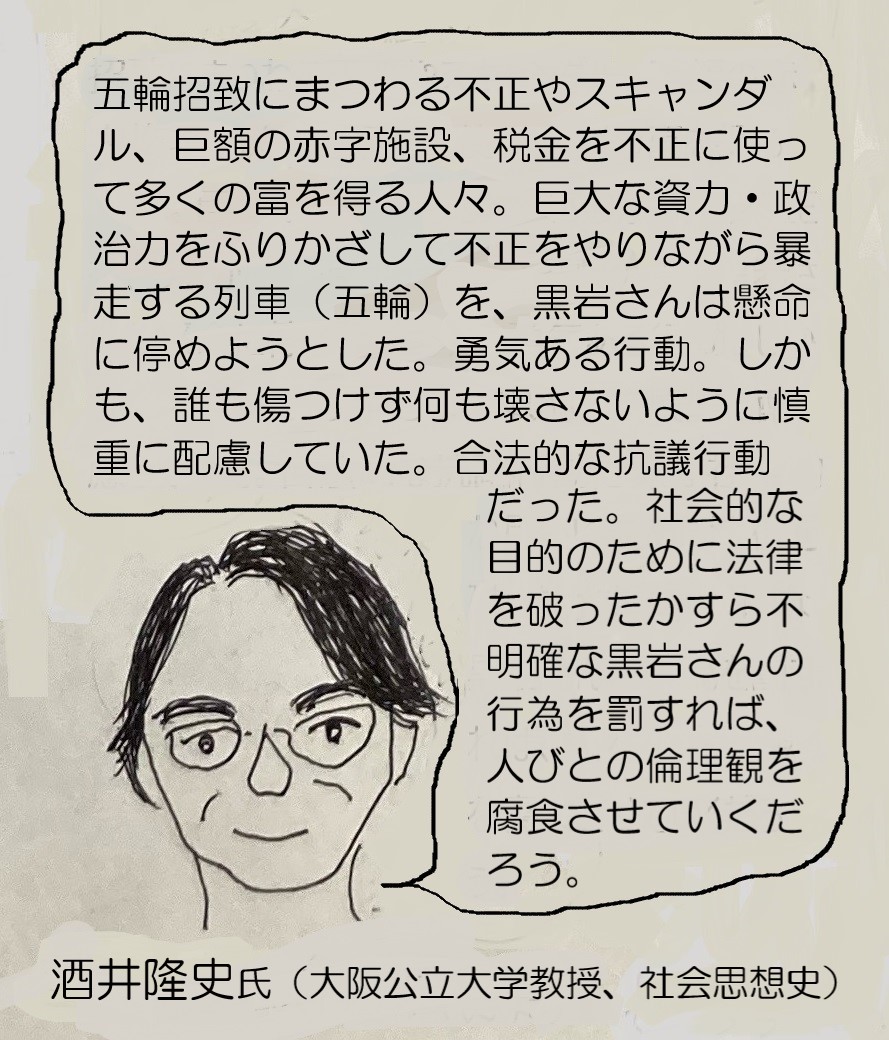 五輪招致にまつわる不正やスキャンダ
ル、巨額の赤字施設、税金を不正に使っ
て多くの富を得る人々。巨大な資力・政
治力をふりかざして不正をやりながら暴
走する列車（五輪）を、黒岩さんは懸命
に停めようとした。勇気ある行動。しか
も、誰も傷つけず何も壊さないように慎
重に配慮していた。合法的な抗議行動
だった。社会的な
目的のために法律
を破ったかすら不
明確な黒岩さんの
行為を罰すれば、
人びとの倫理観を
腐食させていくだ
ろう。
酒井隆史氏（大阪公立大学教授、社会思想史）